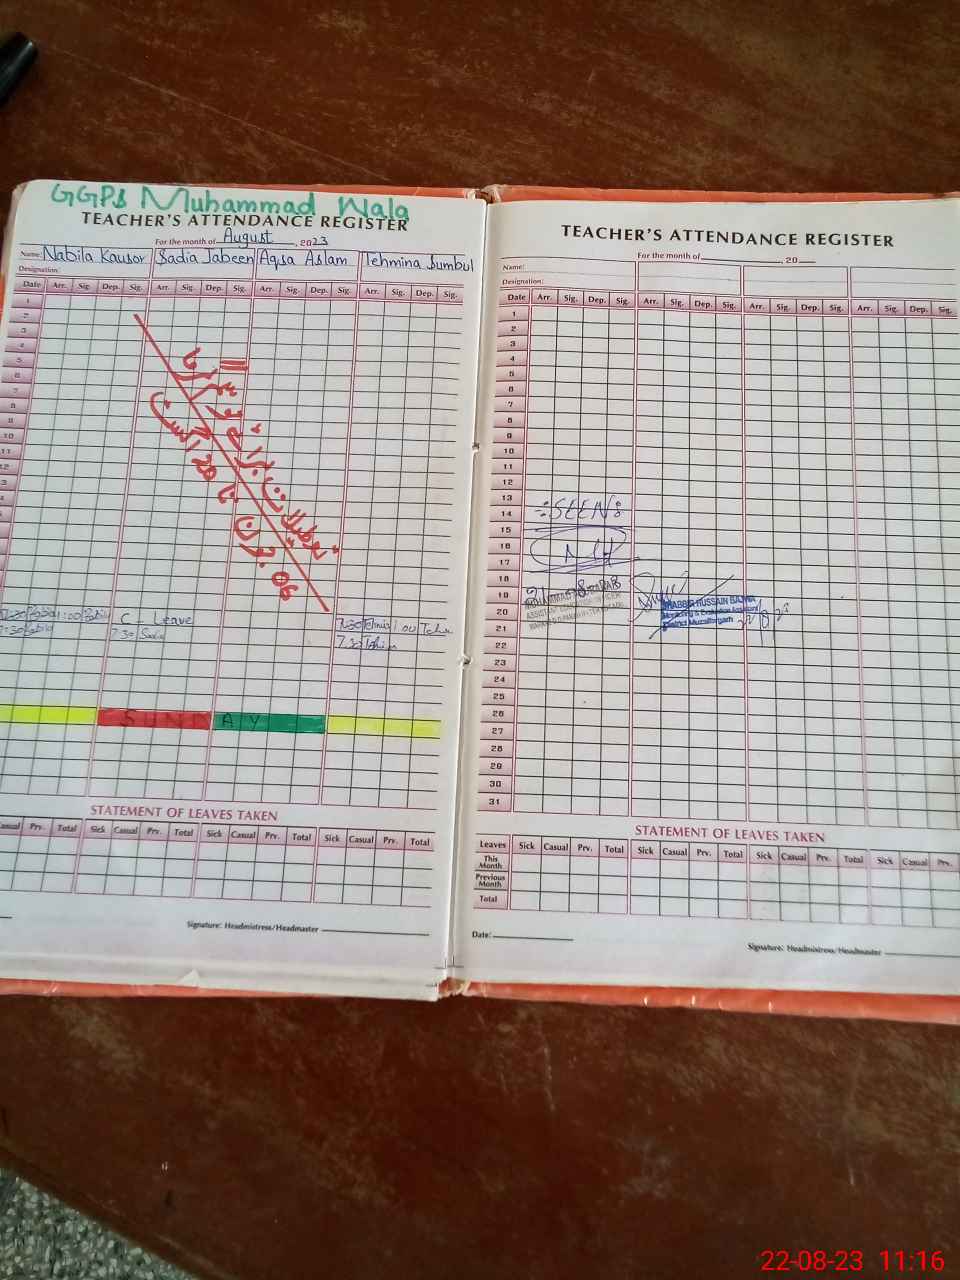 GGPS Muhammad Wala
TEACHER'S ATTENDANCE REGISTER
For the month of August, 2023
Name: Nabila Kausor Sadia Jabeen Aqsa Aslam Tehmina Sumbul
Designation:
Date Arr. Sig. Dep. Sig. Arr. Sig. Dep. Sig. Arr. Sig. Dep. Sig. Arr. Sig. Dep. Sig.
1
2
3
4
5
6
7
8
9
10
11
12
تعطیلات برائے موسم گرما
06 جون تا 20 اگست
7:30 Nabila 1:00 Nabila C Leave 7:30 1:00
7:30 Nabila 7:30 Sadia 7:30
SUNDAY
STATEMENT OF LEAVES TAKEN
Casual Prv. Total Sick Casual Prv. Total Sick Casual Prv. Total Sick Casual Prv. Total
Signature: Headmistress/Headmaster
TEACHER'S ATTENDANCE REGISTER
For the month of , 20
Name:
Designation:
Date Arr. Sig. Dep. Sig. Arr. Sig. Dep. Sig. Arr. Sig. Dep. Sig. Arr. Sig. Dep. Sig.
1
2
3
4
5
6
7
8
9
10
11
12
13
14 SEEN
15
16
17
18
19
20
21
22
23
24
25
26
27
28
29
30
31
SHABBIR HUSSAIN BAJWA
Monitoring & Evaluation Assistant
District Muzaffargarh
STATEMENT OF LEAVES TAKEN
Leaves Sick Casual Prv. Total Sick Casual Prv. Total Sick Casual Prv. Total Sick Casual Prv.
This Month
Previous Month
Total
Date:
Signature: Headmistress/Headmaster
22-08-23 11:16